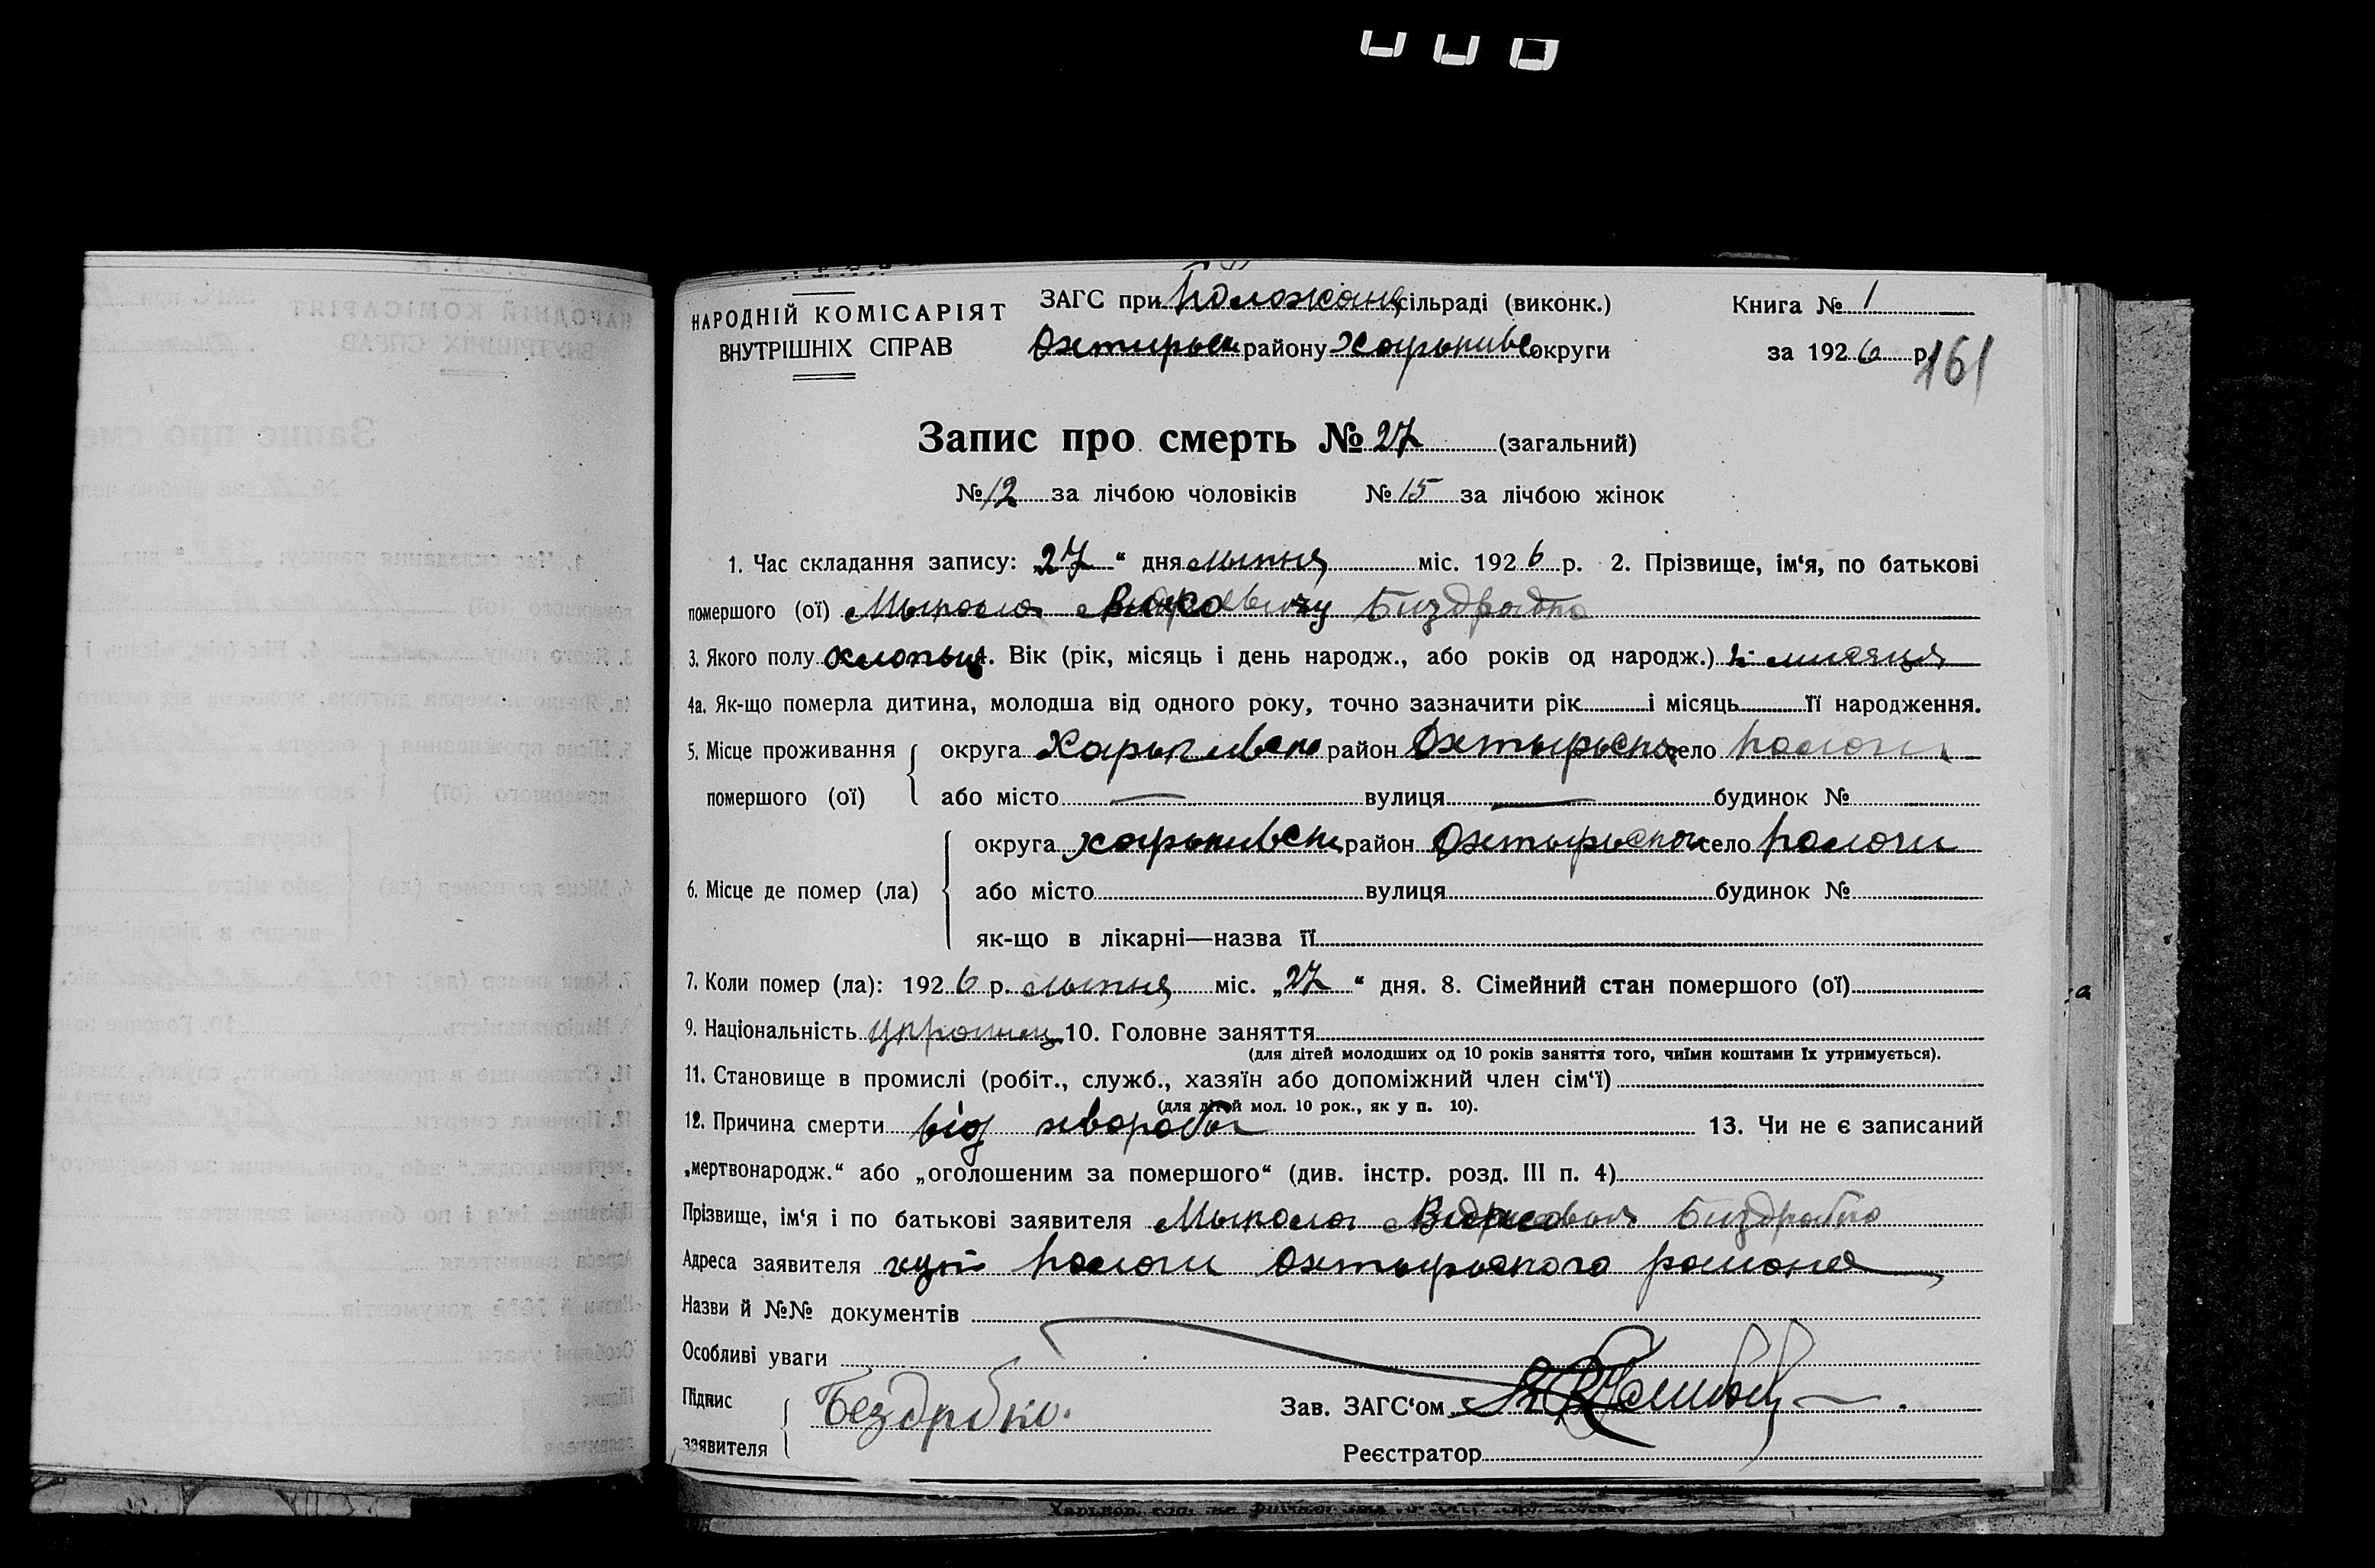 НАРОДНІЙ КОМІСАРІЯТ
ВНУТРІШНІХ СПРАВ
ЗАГС при сільраді (виконк.)
Охтирськ району Харькивс округи
Книга № 1
за 1926 р.
161
Запис про смерть № 27 (загальний)
№ 12 за лічбою чоловіків № 15 за лічбою жінок
1. Час складання запису: 27 “ дня лыпня міс. 1926 р. 2. Прізвище, ім‘я, по батькові
помершого (ої) Мыкола
3. Якого полу хлопыць 4. Вік (рік, місяць і день народж., або років од народж.) мисяця
4а. Як-що померла дитина, молодша від одного року, точно зазначити рік і місяць її народження.
5. Місце проживання помершого (ої) округа Харькивска район Охтырьский село пологи
або місто — вулиця — будинок №
6. Місце де помер (ла) округа харькивск район Охтырьский село пологи
або місто вулиця будинок №
як-що в лікарні—назва її
7. Коли помер (ла): 1926 р. лыпня міс. „27“ дня. 8. Сімейний стан помершого (ої)
9. Національність украинец 10. Головне заняття
(для дітей молодших од 10 років заняття того, чиїми коштами їх утримується).
11. Становище в промислі (робіт., служб., хазяїн або допоміжний член сім‘ї)
(для дітей мол. 10 рок., як у п. 10).
12. Причина смерти від хвороби 13. Чи не є записаний
„мертвонародж.“ або „оголошеним за помершого“ (див. інстр. розд. III п. 4)
Прізвище, ім‘я і по батькові заявителя Мыкола
Адреса заявителя хут пологи Охтырьского района
Назви й №№ документів
Особливі уваги
Підпис заявителя Бездрабко.
Зав. ЗАГС‘ом
Реєстратор